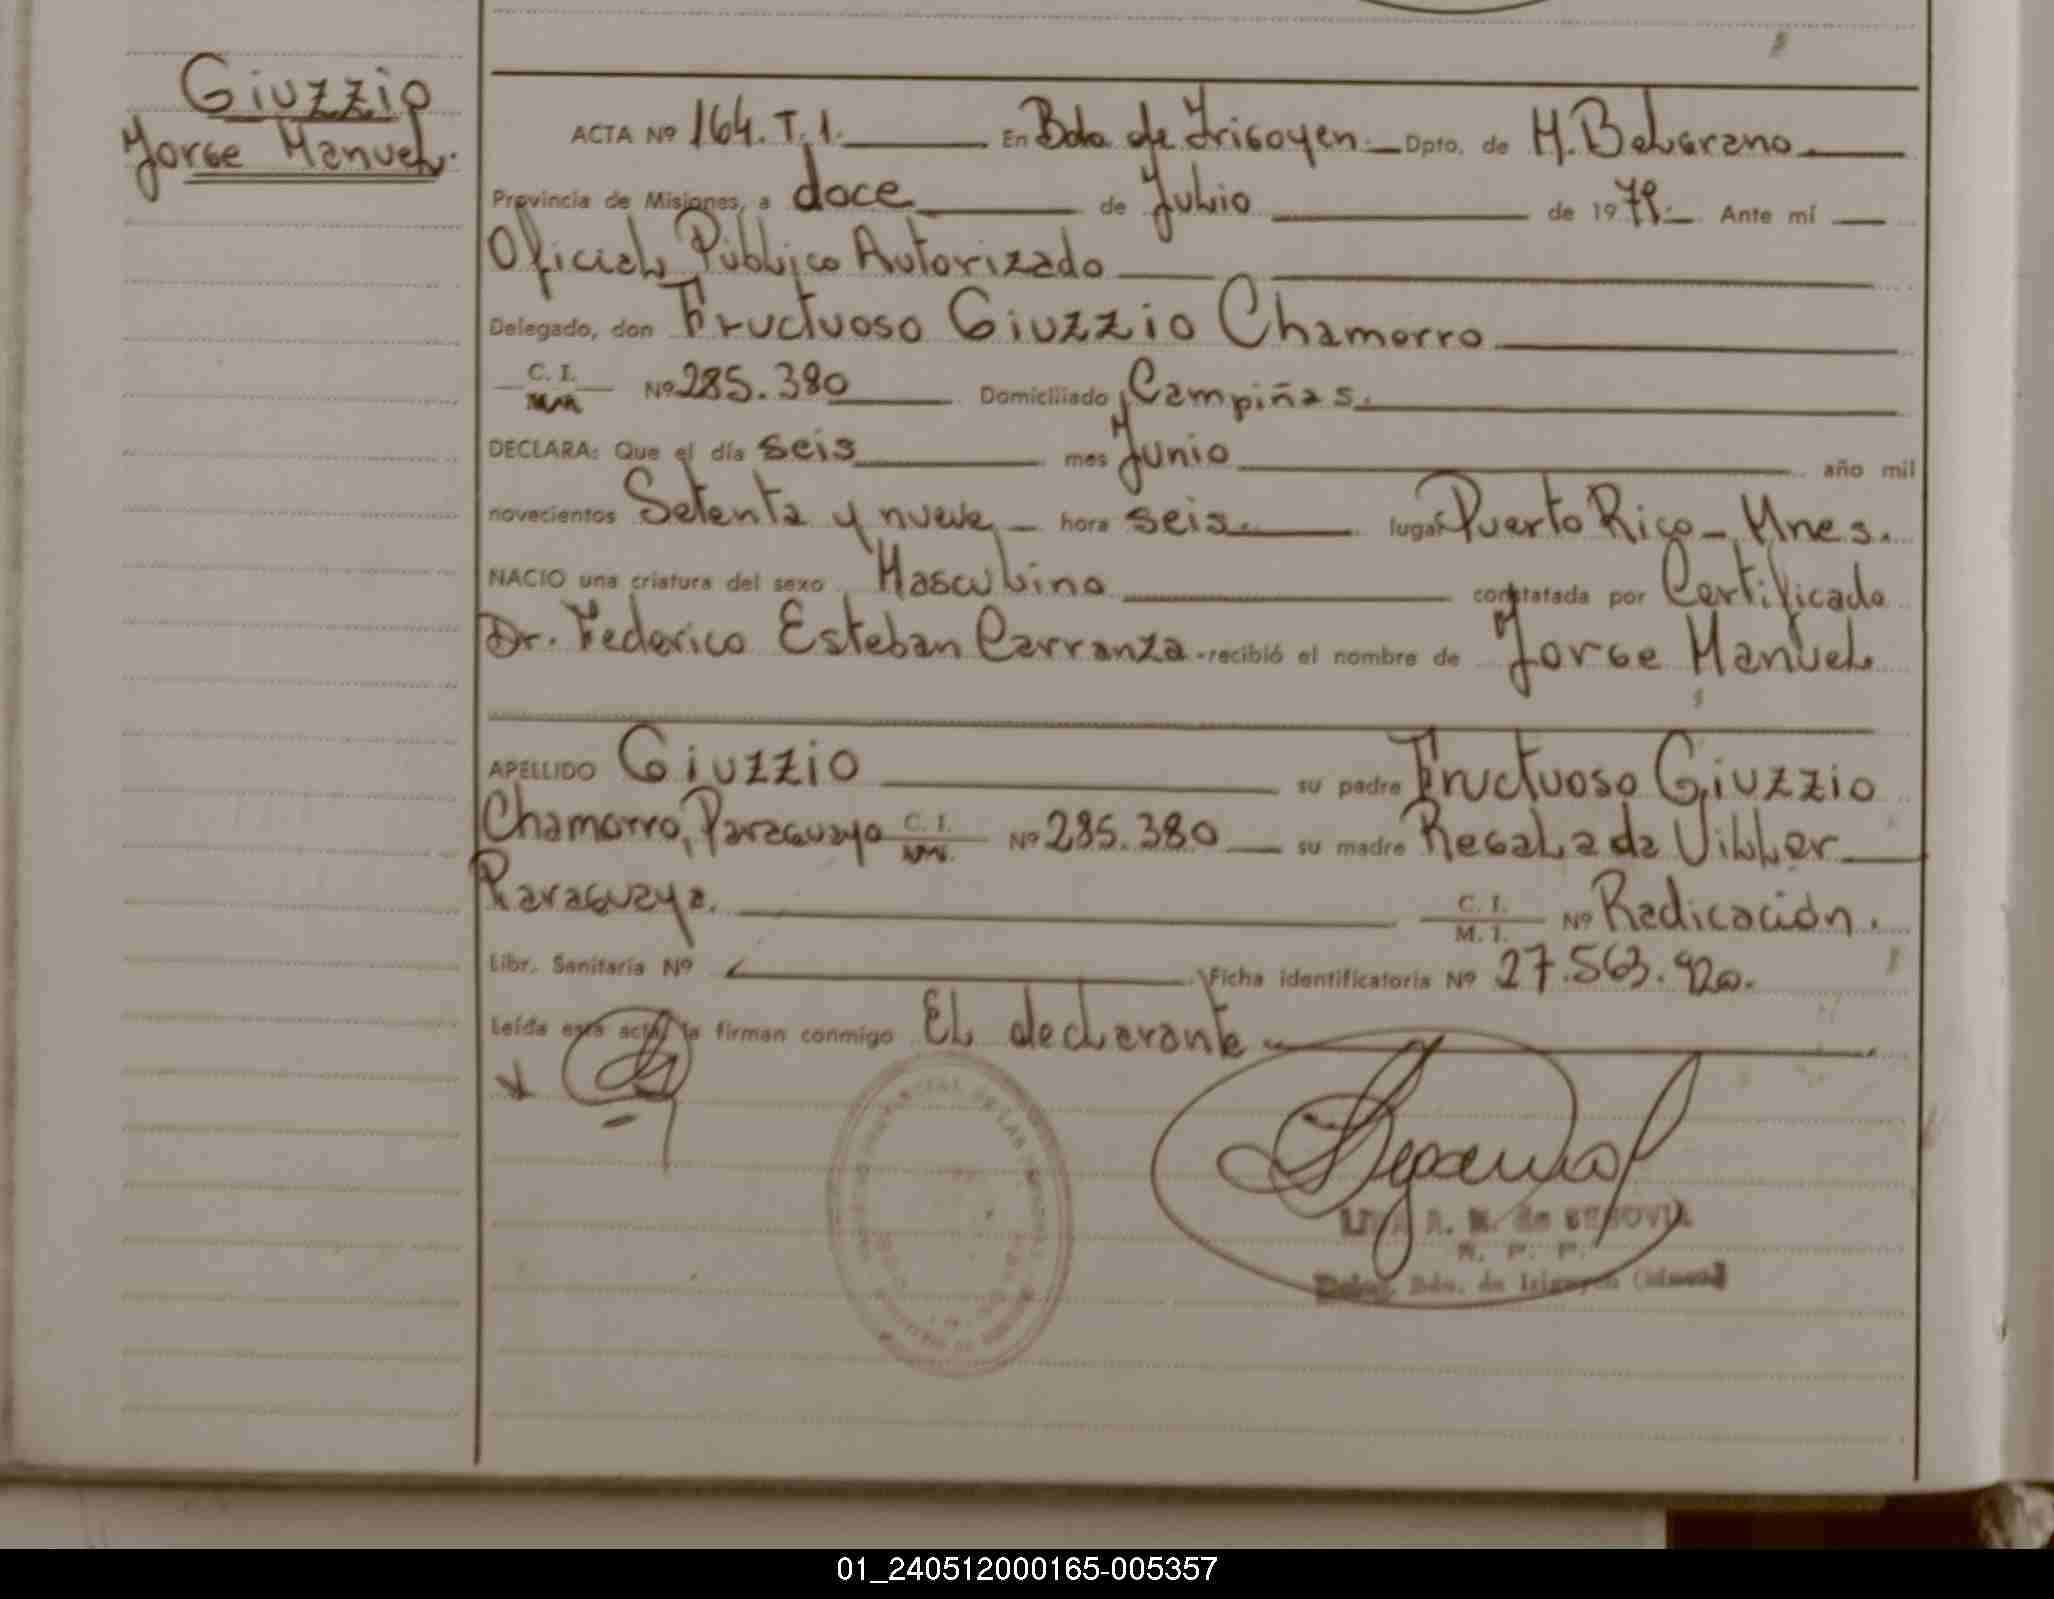 Giuzzio
Jorge Manuel.
ACTA Nº 164. T. 1. En Bdo de Irigoyen. Dpto. de M. Belgrano
Provincia de Misiones, a doce de Julio de 1979. Ante mí
Oficial Público Autorizado
Delegado, don Fructuoso Giuzzio Chamorro
C. I. Nº 285.380 Domiciliado Campiñas.
DECLARA: Que el día seis mes Junio año mil
novecientos Setenta y nueve hora seis. lugar Puerto Rico - Mnes.
NACIO una criatura del sexo Masculino constatada por Certificado
Dr. Federico Esteban Carranza - recibió el nombre de Jorge Manuel
APELLIDO Giuzzio su padre Fructuoso Giuzzio
Chamorro, Paraguayo C. I. Nº 285.380 su madre Regalada Viller
Paraguaya. C. I. M. I. Nº Radicación.
Libr. Sanitaria Nº Ficha identificatoria Nº 27.563.920.
Leída esta acta, la firman conmigo El declarante
R. P. P.
Deleg. Bdo. de Irigoyen (Mnes)
01_240512000165-005357